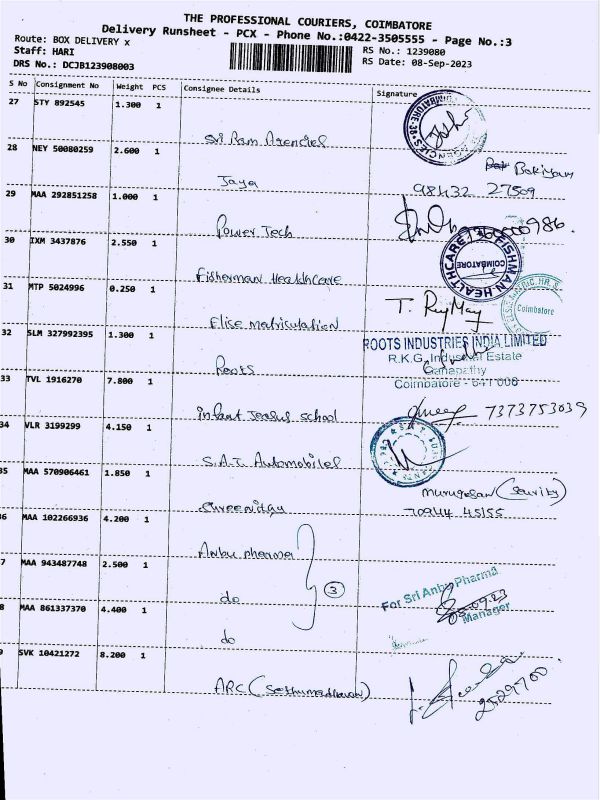 THE PROFESSIONAL COURIERS, COIMBATORE
Delivery Runsheet - PCX - Phone No.:0422-3505555 - Page No.:3
Route: BOX DELIVERY x
RS No.: 1239080
Staff: HARI
RS Date: 08-Sep-2023
DRS No.: DCJB123908003
S No Consignment No Weight PCS Consignee Details Signature
27 STY 892545 1.300 1
Sri Ram Agencies
28 NEY 50080259 2.600 1
Jaya
Bakiyam
98432 27509
29 MAA 292851258 1.000 1
Power Tech
30 IXM 3437876 2.550 1
Fisherman Healthcare
FISHMAN HEALTHCARE
COIMBATORE
31 MTP 5024996 0.250 1
Elise matriculation
T. RayMay
Coimbatore
32 SLM 327992395 1.300 1
Roots
ROOTS INDUSTRIES INDIA LIMITED
R.K.G. Industrial Estate
Ganapathy
Coimbatore - 641 006
33 TVL 1916270 7.800 1
infant Jesus school
7373753039
34 VLR 3199299 4.150 1
S.A.T. Automobiles
35 MAA 570906461 1.850 1
murugesan (Security)
70944 45155
36 MAA 102266936 4.200 1
Anbu pharma
7 MAA 943487748 2.500 1
do
3
For Sri Anbu Pharma
Manager
8 MAA 861337370 4.400 1
do
9 SVK 10421272 8.200 1
ARC (Sethumadhavan)